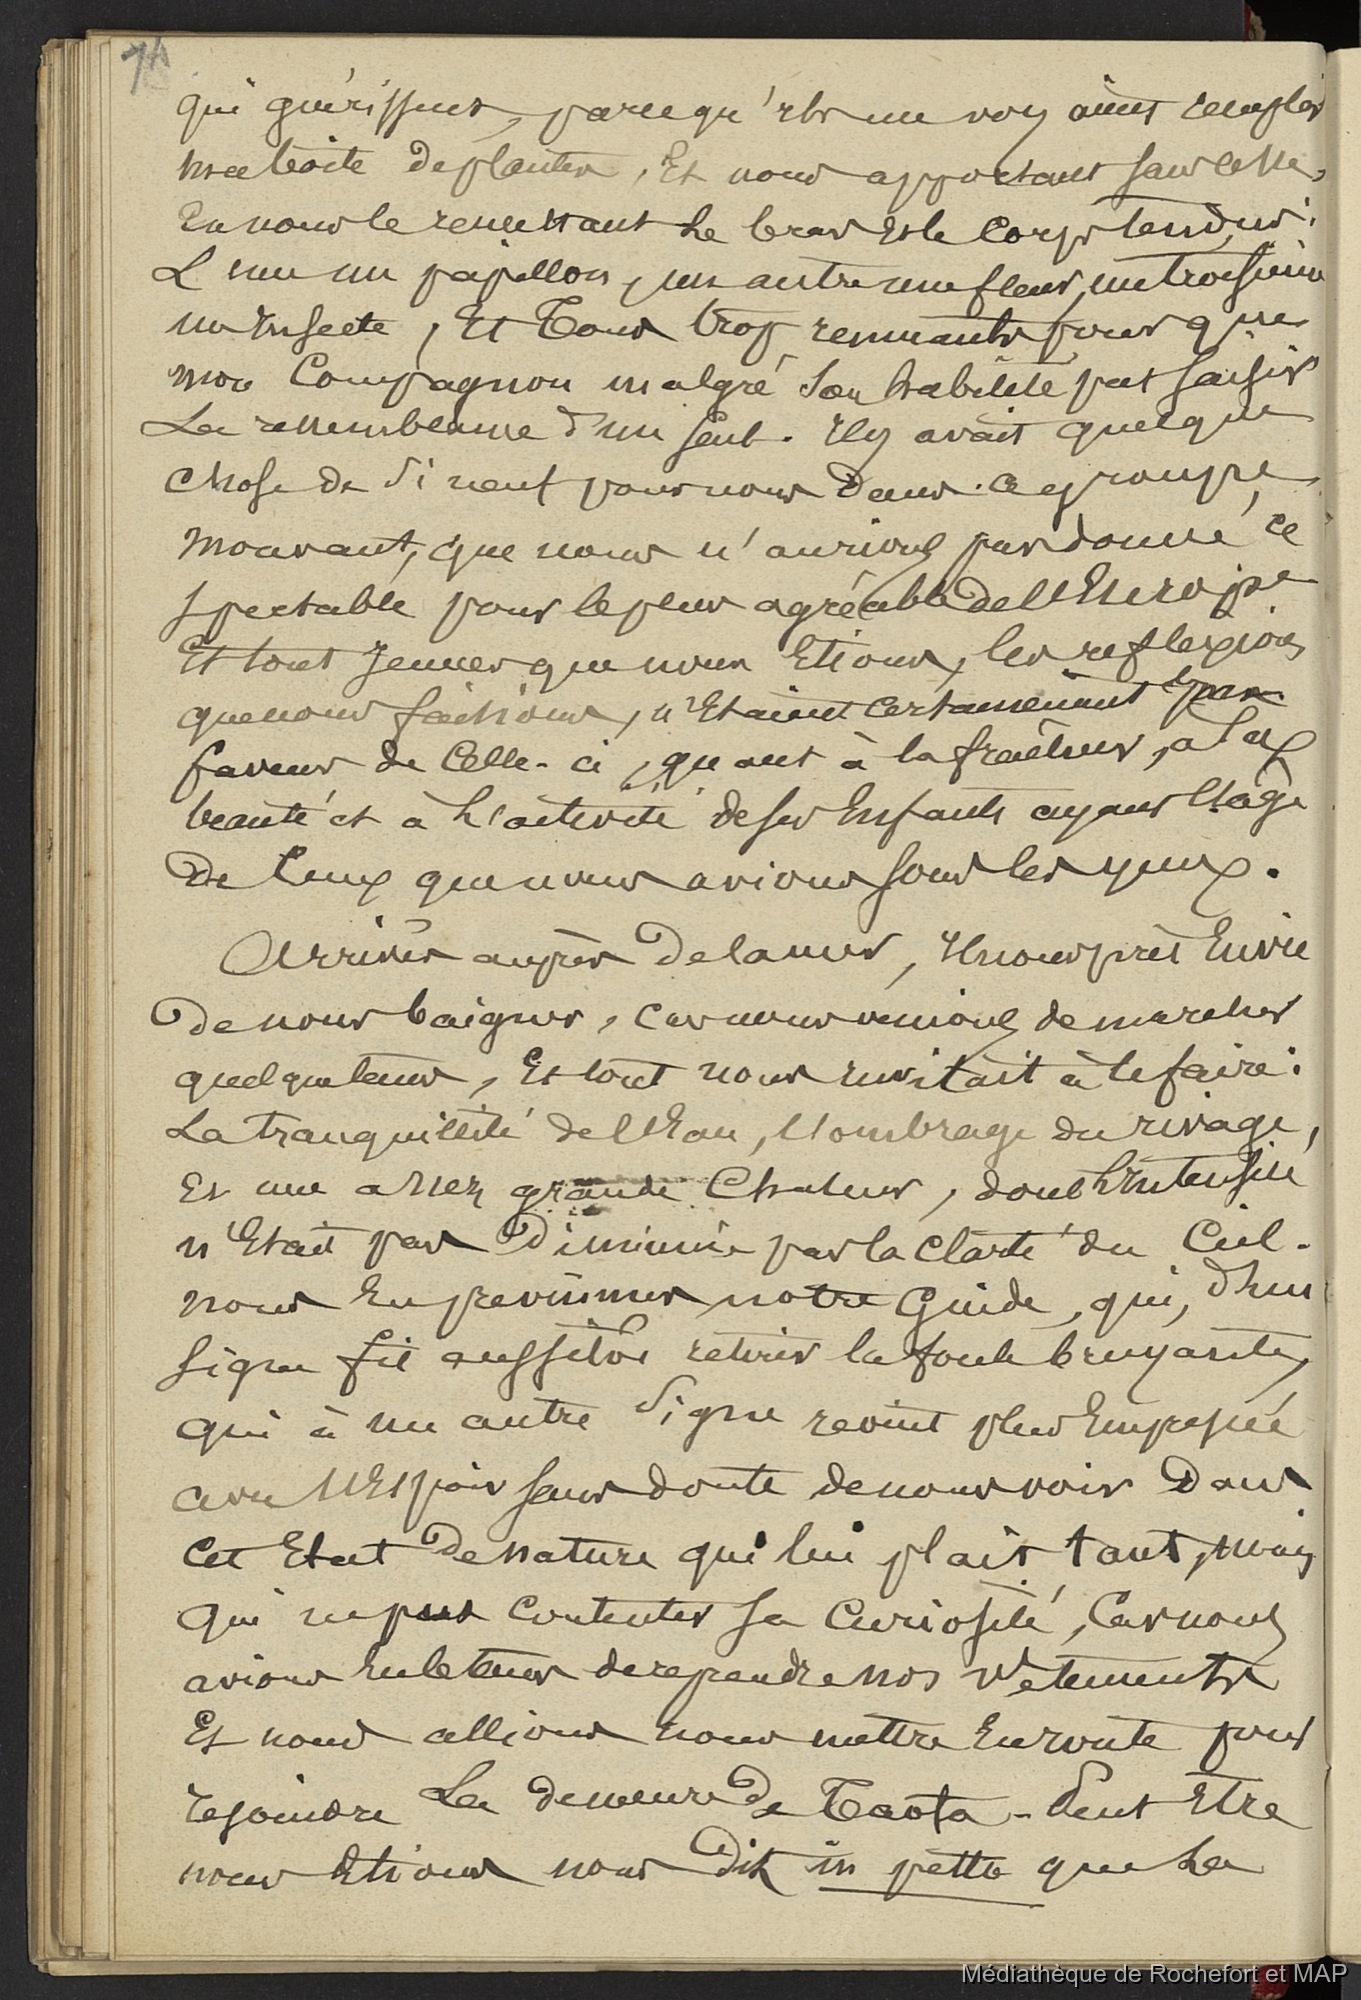 74
qui guérissent, parcequ'ils me voyaient remplir
ma boite de plantes, Et nous apportant sans cesse,
En nous le remettant le bras Et le corps tendus:
L'un un papillon, un autre une fleur, un troisième
un Insecte, Et Tous trop remuants pour que
mon Compagnon malgré son habileté put saisir
La ressemblance d'un seul. Il y avait quelque
chose de si neuf pour nous dans ce groupe
mouvant, que nous n'aurions pas donné ce
spectable pour le plus agréable de l'Europe
Et tout Jeunes que nous Etions, les reflexions
que nous faisions, n'Etaient certainement pas
faveur de Celle-ci, quant à la fraicheur, à la
beauté et à L'activité de ses Enfants ayant l'âge
De Ceux que nous avions sous les yeux.
Arrivés auprès De la mer, Il nous prit Envie
De nous baigner, car nous venions de marcher
quelque tems, Et tout nous invitait à le faire:
La tranquillité de l'Eau, l'ombrage du rivage,
Et une assez grande Chaleur, dont L'Intensité
n'Etait pas Diminuée par la clarté du Ciel.
nous En prevînmes notre Guide, qui, d'un
signe fit aussitôt retirer la foule bruyante,
qui à un autre signe revint plus Empressée
avec l'Espoir sans doute de nous voir Dans
cet Etat De nature qui lui plait tant, mais
qui ne put contenter sa Curiosité, Car nous
avions Eu le tems de reprendre nos vêtements
Et nous allions nous mettre En route pour
rejoindre La demeure De Taofa - Peut Etre
nous Etions nous Dit in petto que La
Médiathèque de Rochefort et MAP